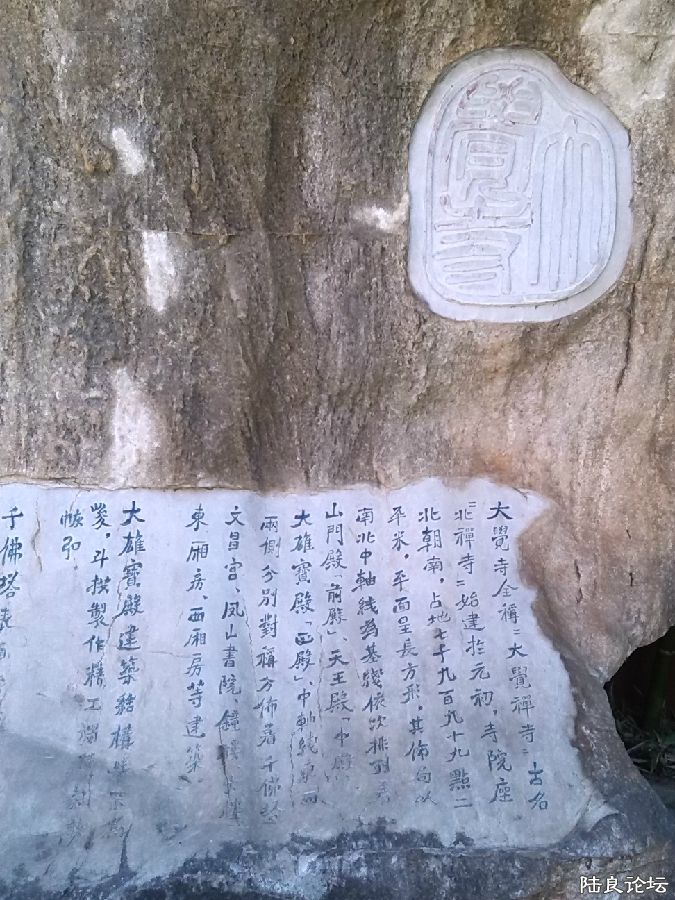 大覺寺
大覺寺全稱"大覺禪寺"古名
"北禪寺"始建於元初，寺院座
北朝南，占地七千九百九十九點二
平米，平面呈長方形，其佈局以
南北中軸线為基綫依次排列着
山門殿「前殿」、天王殿「中殿」
大雄寶殿、「西殿」中軸线東西
兩側分別對稱分佈着千佛塔
文昌宮、凤山書院、鐘樓、鼓樓
東厢房、西厢房等建築。
大雄寶殿建築結構
斗拱製作精工
恢弘。
千佛塔
陆良论坛